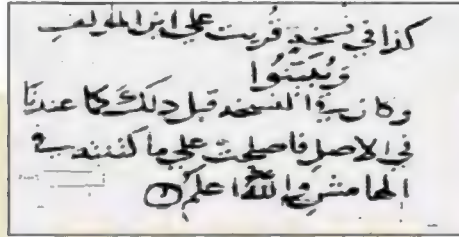 كذا في نسخة قريت علي ابن المولف
وَيُبَيِّنُوا
وكان في النسخه قبل ذلك كما عندنا
في الاصل فاصلحت علي ما كتبته في
الهامش والله اعلم